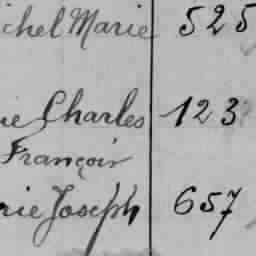 chel Marie 525
ie Charles 123
François
rie Joseph 657